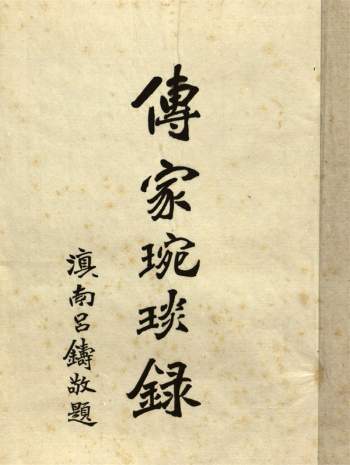 傳家琬琰録
滇南吕鑄敬題